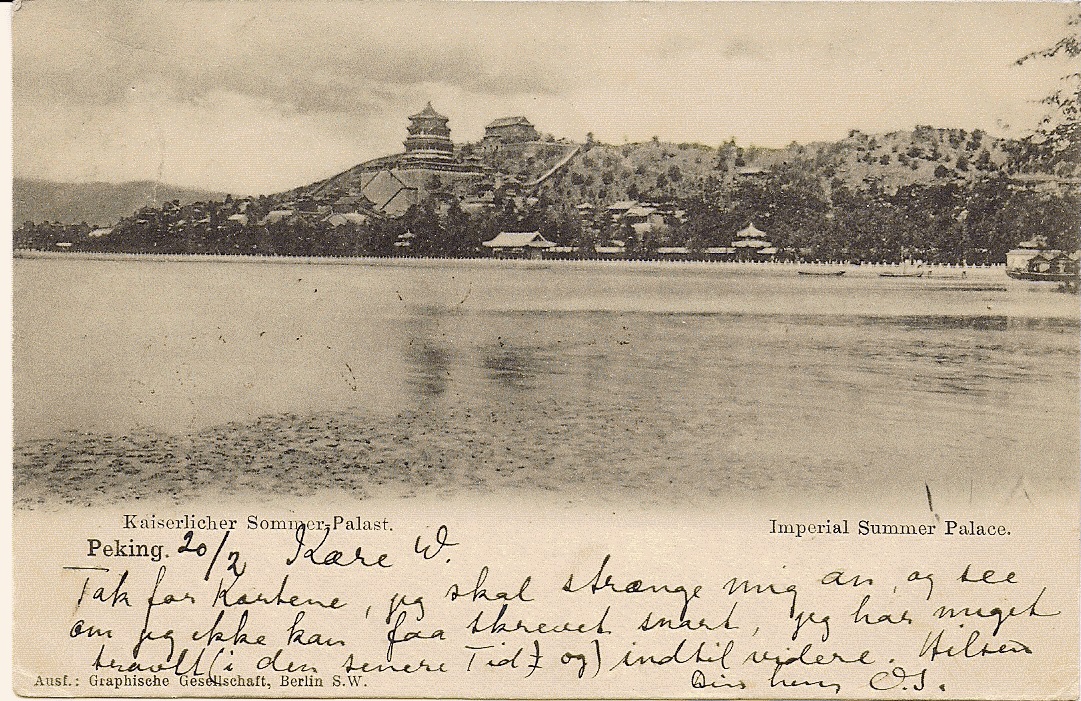 Kaiserlicher Sommer-Palast.
Imperial Summer Palace.
Peking. 20/2 Kære W.
Tak for Kortene, jeg skal strænge mig an, og see
om jeg ikke kan faa skrevet snart, jeg har meget
travlt (i den senere Tid og) indtil videre. Hilsen
Din O.J.
Ausf.: Graphische Gesellschaft, Berlin S.W.